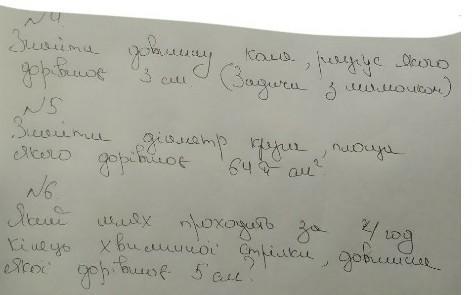 N4
Знайти довжину кола, радіус якого
дорівнює 3 см (Задачи з малюнком)
N5
Знайти діаметр круга, площа
якого дорівнює 64π см²
N6
Який шлях проходить за 2/год
кінець хвилинної стрілки, довжина
якої дорівнює 5 см?